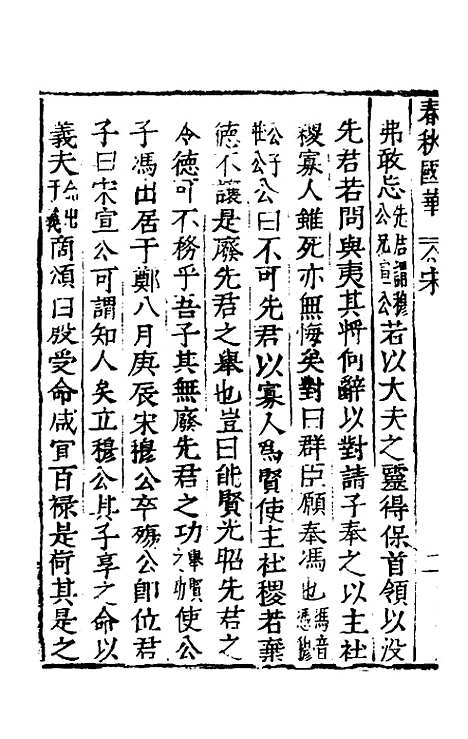 春秋國華　宋　二
弗敢忘先君謂穆公兄宣公若以大夫之靈得保首領以沒
先君若問與夷其將何辭以對請子奉之以主社
稷寡人雖死亦無悔矣對曰群臣願奉馮也馮音憑穆
公子莊公公曰不可先君以寡人為賢使主社稷若棄
德不讓是廢先君之舉也豈曰能賢光昭先君之
令德可不務乎吾子其無廢先君之功舉賢之功使公
子馮出居于鄭八月庚辰宋穆公卒殤公即位君
子曰宋宣公可謂知人矣立穆公其子享之命以
義夫命出于義商頌曰殷受命咸宜百祿是荷其是之